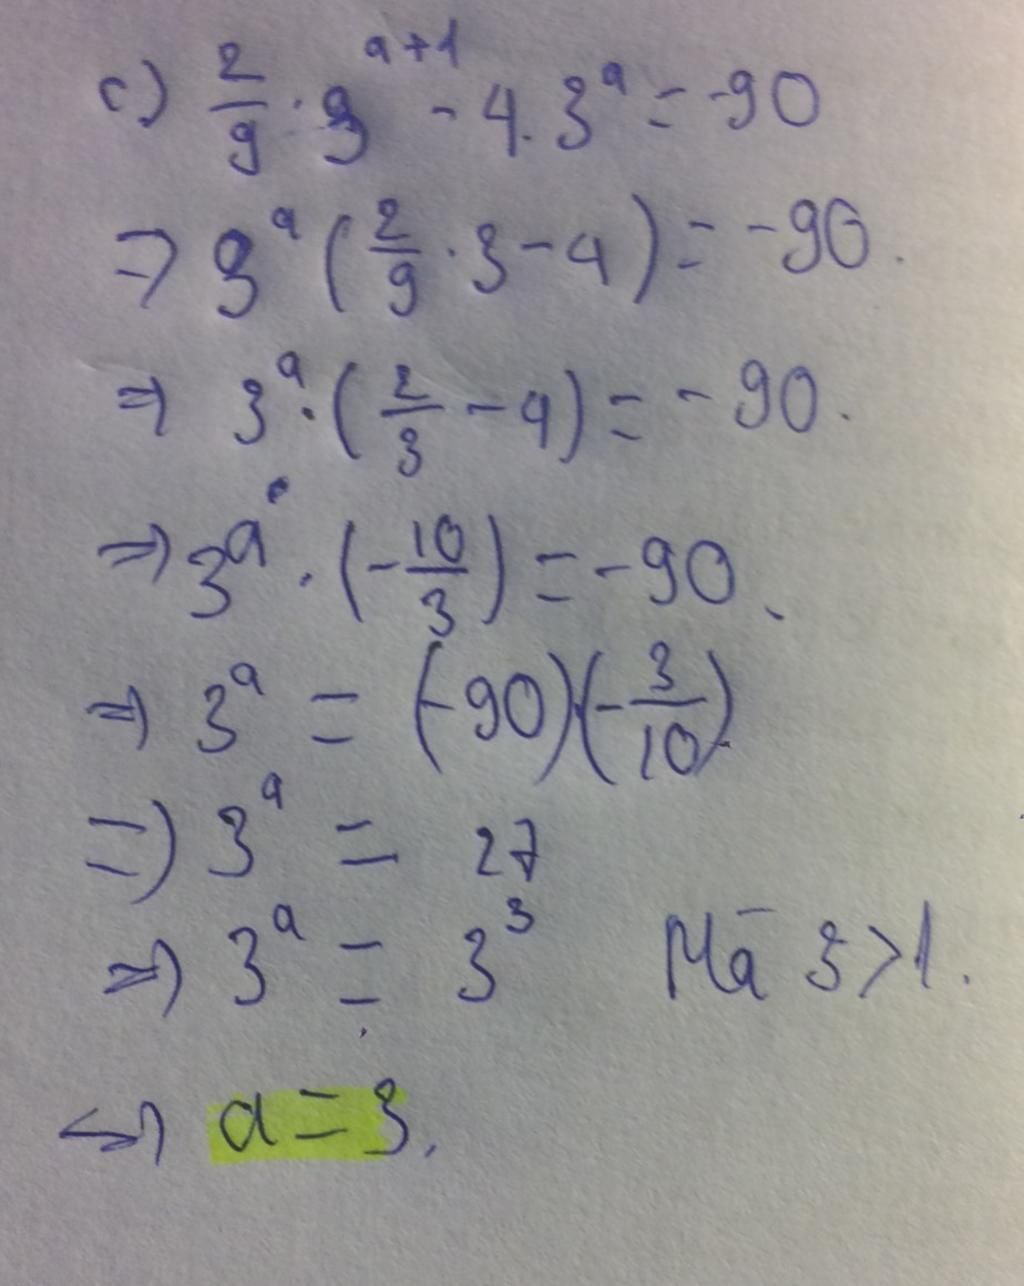 c) 2/9 . 3^(a+1) - 4. 3^a = -90
=> 3^a (2/9 . 3 - 4) = -90.
=> 3^a . (2/3 - 4) = -90.
=> 3^a . (-10/3) = -90.
=> 3^a = (-90)(-3/10).
=> 3^a = 27
=> 3^a = 3^3 Mà 3>1.
<=> a = 3.